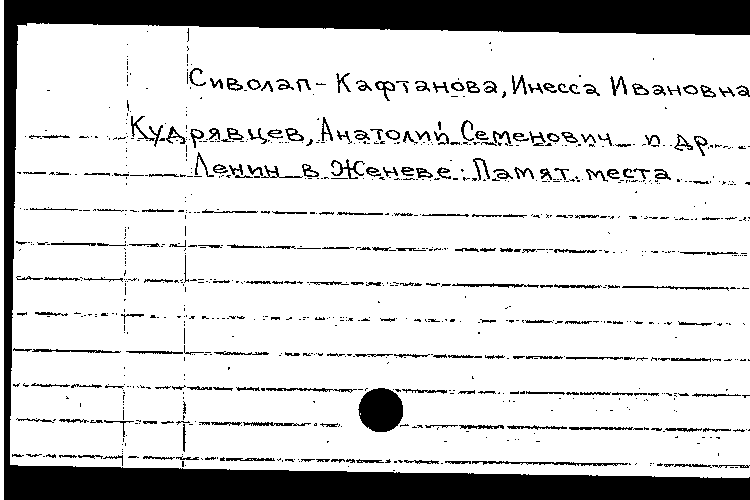 Сиволап-Кафтанова, Инесса Ивановна
Кудрявцев, Анатолий Семенович и др.
Ленин в Женеве: Памят. места.